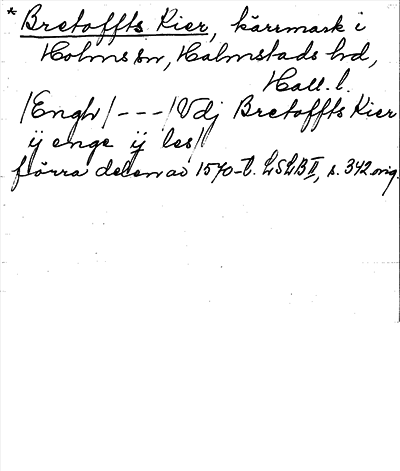 * Bretoffts Kier, kärrmark i
Holms sn, Halmstads hd,
Hall. l.
/Engh/ --- /Vdj Bretoffts Kier
ij enge ij les/
förra delen av 1570-t. LSLB II, s. 342 orig.